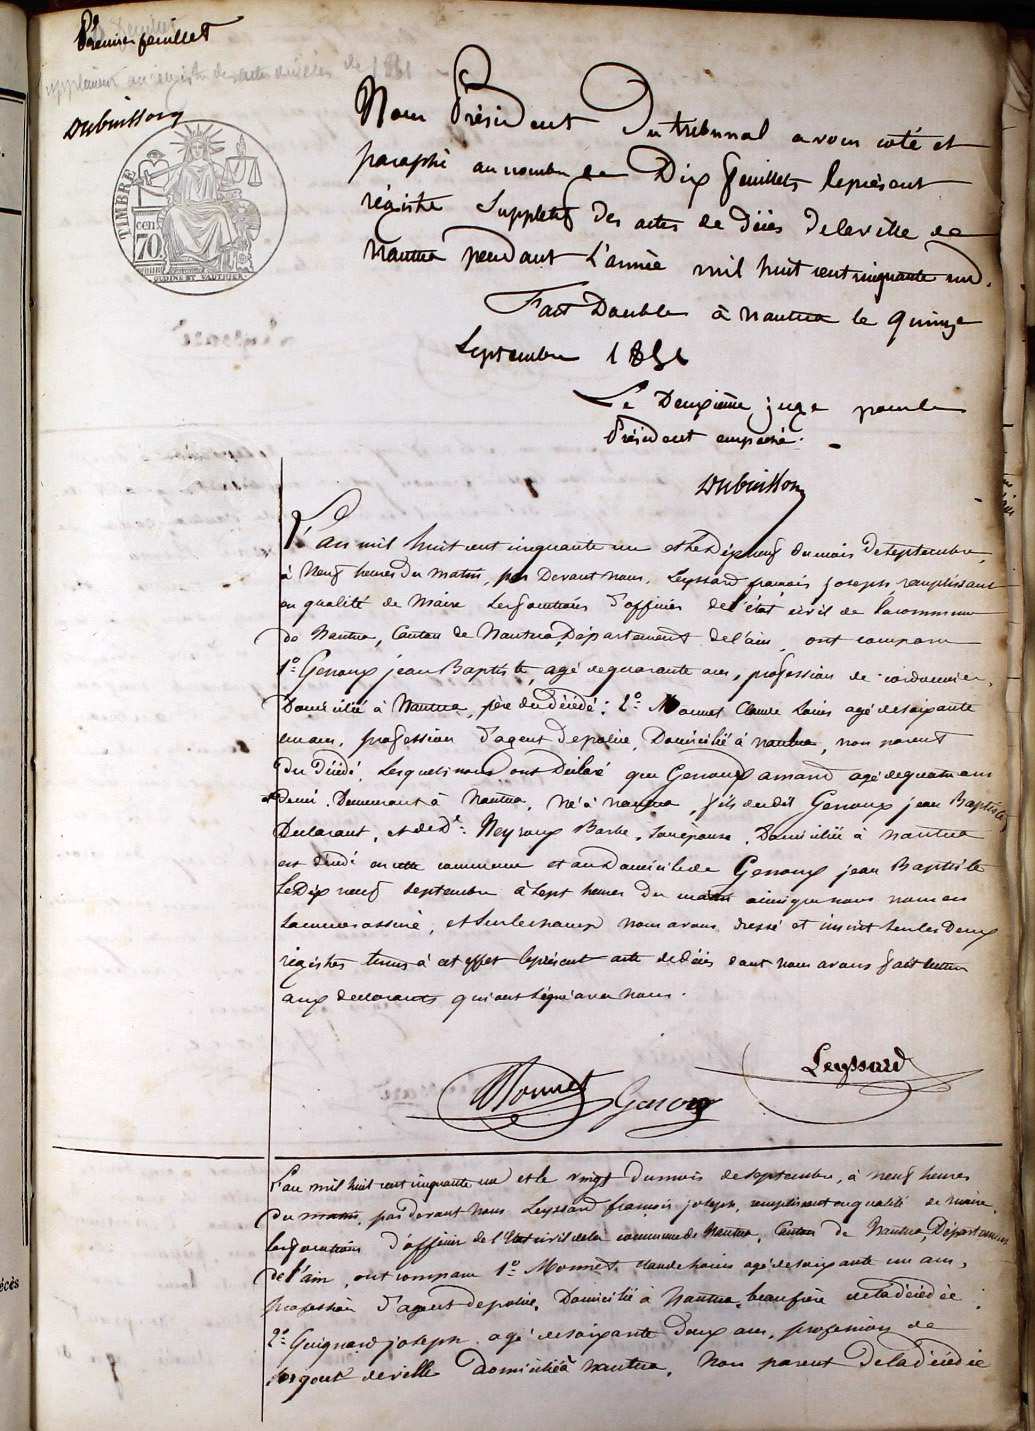 Premier feuillet
Supplément au registre des actes de décès de 1851
Dubuisson
TIMBRE
cen
70
Nous Président du tribunal avons coté et
paraphé au nombre de Dix feuillets le présent
régistre Suppletif des actes de décès de la ville de
Nantua pendant L'année mil huit cent cinquante un.
Fait Double à Nantua le quinze
Septembre 1851
Le Deuxième juge pour le
Président empêché.
Dubuisson
L'an mil huit cent cinquante un et le Dix neuf du mois de Septembre,
à Neuf heures du matin, par Devant nous, Leyssard françois joseph remplissant
en qualité de Maire Les fonctions d'officier de l'état civil de la commune
de Nantua, Canton de Nantua, Département de l'ain, ont comparu
1º Genoux jean Baptiste, agé de quarante ans, profession de cordonnier,
Domicilié à Nantua, père du décédé; 2º Monnet Claude Louis agé de soixante
un ans, profession d'agent de police, Domicilié à nantua, non parent
du Décédé. Lesquels nous ont Déclaré que Genoux amand agé de quatre ans
& demi. Demeurant à Nantua, Né à nantua, fils du dit Genoux jean Baptiste,
Déclarant, et de De Neyroux Barbe, Son épouse, Domiciliée à nantua
est décédé en cette commune et au Domicile de Genoux jean Baptiste
Le Dix neuf septembre à Sept heures du matin ainsi que nous nous en
sommes assuré, et Sur le champ nous avons dressé et inscrit Sur les Deux
régistres tenus à cet effet le présent acte de décès dont nous avons fait lecture
aux déclarants qui ont Signé avec Nous.
Leyssard
Monnet Genoux
L'an mil huit cent cinquante un et le vingt du mois de septembre, à neuf heures
du matin, par devant nous Leyssard françois joseph, remplissant en qualité de maire,
les fonctions d'officier de l'Etat civil de la commune de Nantua, Canton de Nantua, Département
de l'ain, ont comparu 1º Monnet claude Louis agé de soixante un ans,
profession d'agent de police, Domicilié à Nantua, beau frère de la décédée;
2º Guignard joseph, agé de soixante Deux ans, profession de
sergent de ville domicilié à nantua, Non parent De la décédée
écès